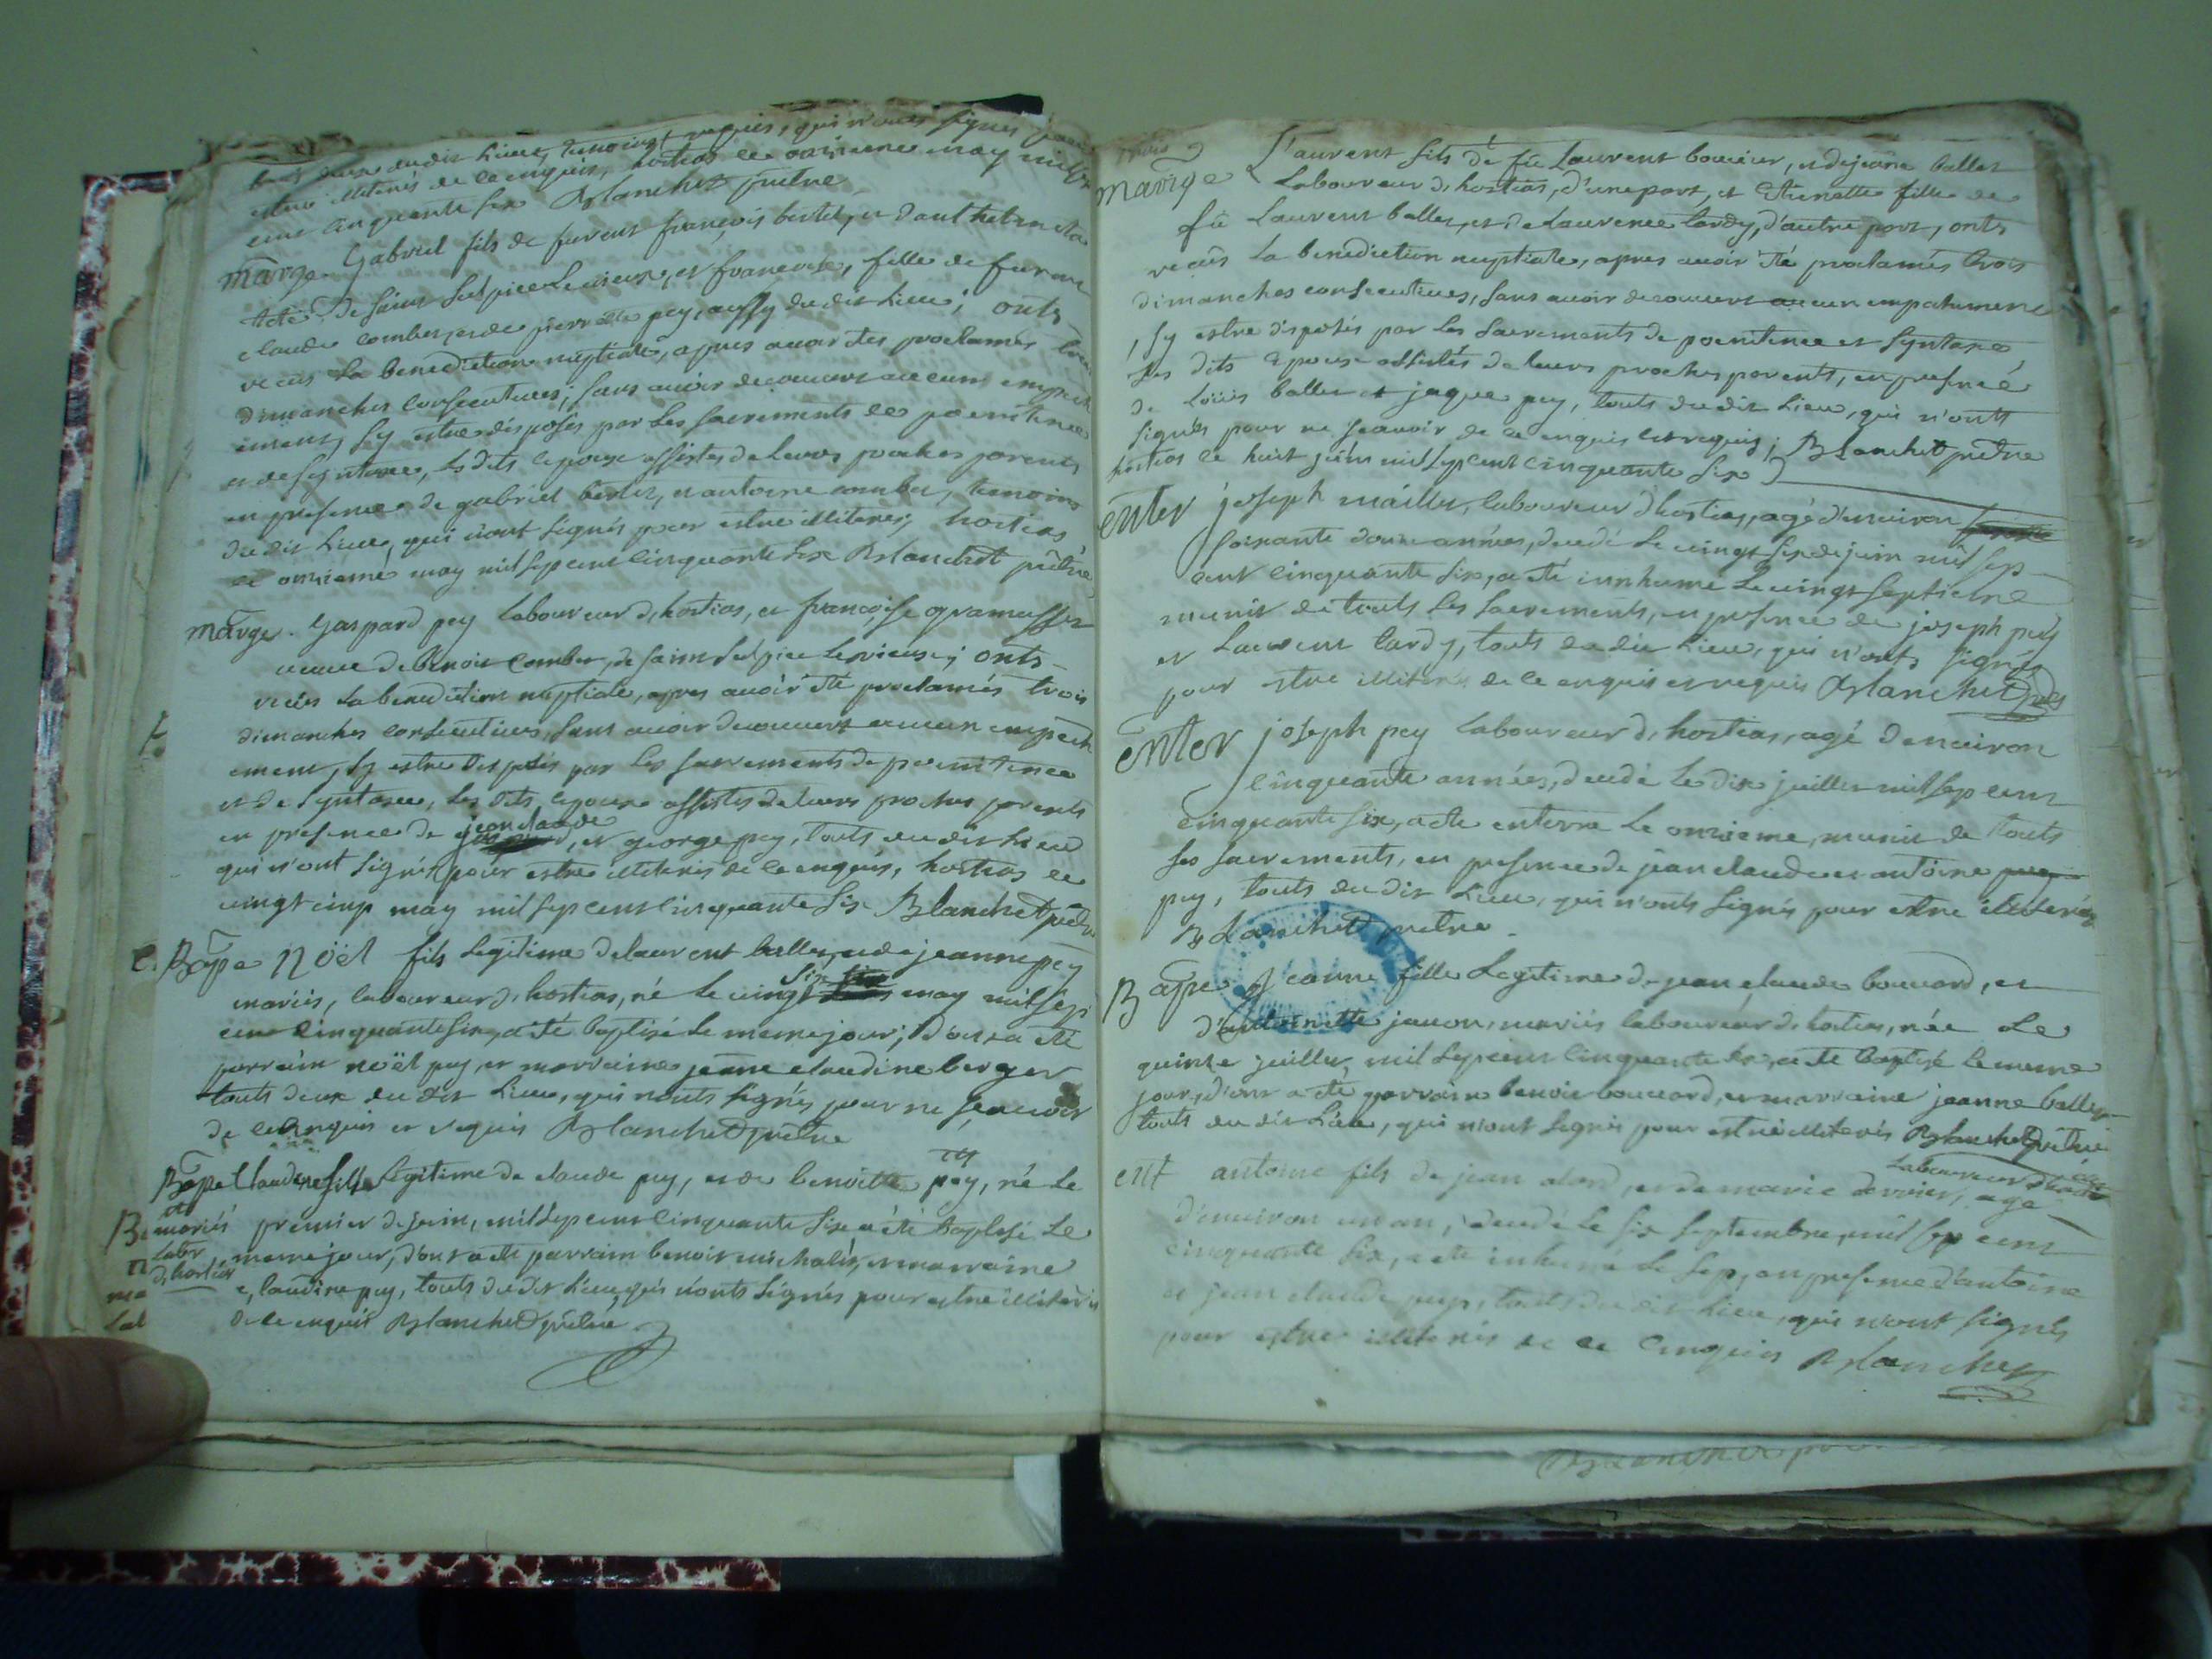 estre illiterés de ce enquis, hostias ce onzieme may mil sep
cent cinquante six Blanchet prêtre
mârge. Gabriel fils de furent françois bertet, et d'anthelmeta
teté de saint Sulpice le vieux, et francoise, fille de furent
claude combet, et de pierrette pey, aussy du dit Lieu; onts
recus la benediction nuptiale, apres avoir étes proclamés trois
dimanches consecutives, sans avoir decouvers aucuns empech
ement, sy estre disposés par les sacrements de poenitence
et de syntaxe, les dits epoux assistes de leurs proches parents
en presence de gabriel bertet, et antoine combet, temoins
du dit Lieu, qui n'ont signés pour estre illiterés, hostias
ce onziemé may mil sep cent cinquante six Blanchet prêtre
mârge. Gaspard pey laboureur d'hostias, et françoise
veuve de Benoit Combet, de saint Sulpice le vieux; onts
recûs la benediction nuptiale, apres avoir été proclamés trois
dimanches consecutives, sans avoir decouvert aucun empech
ement, sy estre disposés par les sacrements de poenitence
et de syntaxe, les dits epoux assistes de leurs proches parents
en presence de jean claude, et george pey, touts du dit Lieu
qui n'ont signés pour estre illiterés de ce enquis, hostias ce
vingt cinq may mil sep cent cinquante six Blanchet prêtre
Bâpe Noël fils legitime de laurent ballet, et de jeanne pey
mariés, laboureur d'hostias, né le vingt six may mil sep
cent cinquante six, a été baptisé le meme jour; dont a été
parrain noël pey, et marraine jeanne claudine berger
touts deux du dit Lieu, qui n'onts signés pour ne sçavoir
de ce enquis et requis Blanchet prêtre
Bâpe Claudine fille legitime de claude pey, et de benoitte pey, né le
mariés premier de juin, mil sep cent cinquante six a été baptisé le
labr meme jour, dont a été parrain benoit michalet, et marraine
d'hostias claudine pey, touts du dit Lieu, qui n'onts signés pour estre illiterés
de ce enquis Blanchet prêtre
marige Laurent fils de fû Laurent bouvier, et de jeane ballet
Laboureur d'hostias, d'une part, et Etienette fille de
fû Laurent ballet, et de Laurence lardy, d'autre part, onts
recûs la benediction nuptiale, apres avoir été proclamés trois
dimanches consecutives, sans avoir decouvert aucun empechement
, sy estre disposés par les sacrements de poenitence et syntaxe,
les dits epoux assistés de leurs proches parents, en presence
de Loüis ballet et jaque pey, touts du dit Lieu, qui n'onts
signés pour ne scavoir de ce enquis et requis; Blanchet prêtre
hostias ce huit jeûin mil sep cent cinquante six
enter joseph maillet, laboureur d'hostias, agé d'environ
soixante douze années, decedé le vingt six de juin mil sep
cent cinquante six, a été innhumé le vingt septieme
munit de touts les sacrements, en presence de joseph pey
et Laurent lardy, touts du dit Lieu, qui n'onts signés
pour estre illiterés de ce enquis et requis Blanchet prêtre
enter joseph pey laboureur d'hostias, agé d'environ
cinquante années, decedé le dix juillet mil sep cent
cinquante six, a été enterré le onzieme, munit de touts
les sacrements, en presence de jean claude et antoine
pey, touts du dit Lieu, qui n'onts signés pour estre illiterés
Blanchet prêtre.
Bâpe Jeanne fille legitime de jean claude bouvard, et
d'antoinette javon, mariés laboureur d'hostias, née le
quinze juillet, mil sep cent cinquante six, a été baptisé le meme
jour, dont a été parrain benoit bouvard, et marraine jeanne ballet
touts du dit Lieu, qui n'ont signés pour estre illiterés Blanchet prêtre
laboureur d'hostias
ent antoine fils de jean, et de marie, agé
d'environ un an, decedé le six septembre, mil sep cent
cinquante six, a été inhumé le sep, en presence d'antoine
et jean claude pey, touts du dit Lieu, qui n'ont signés
pour estre illiterés de ce enquis Blanchet